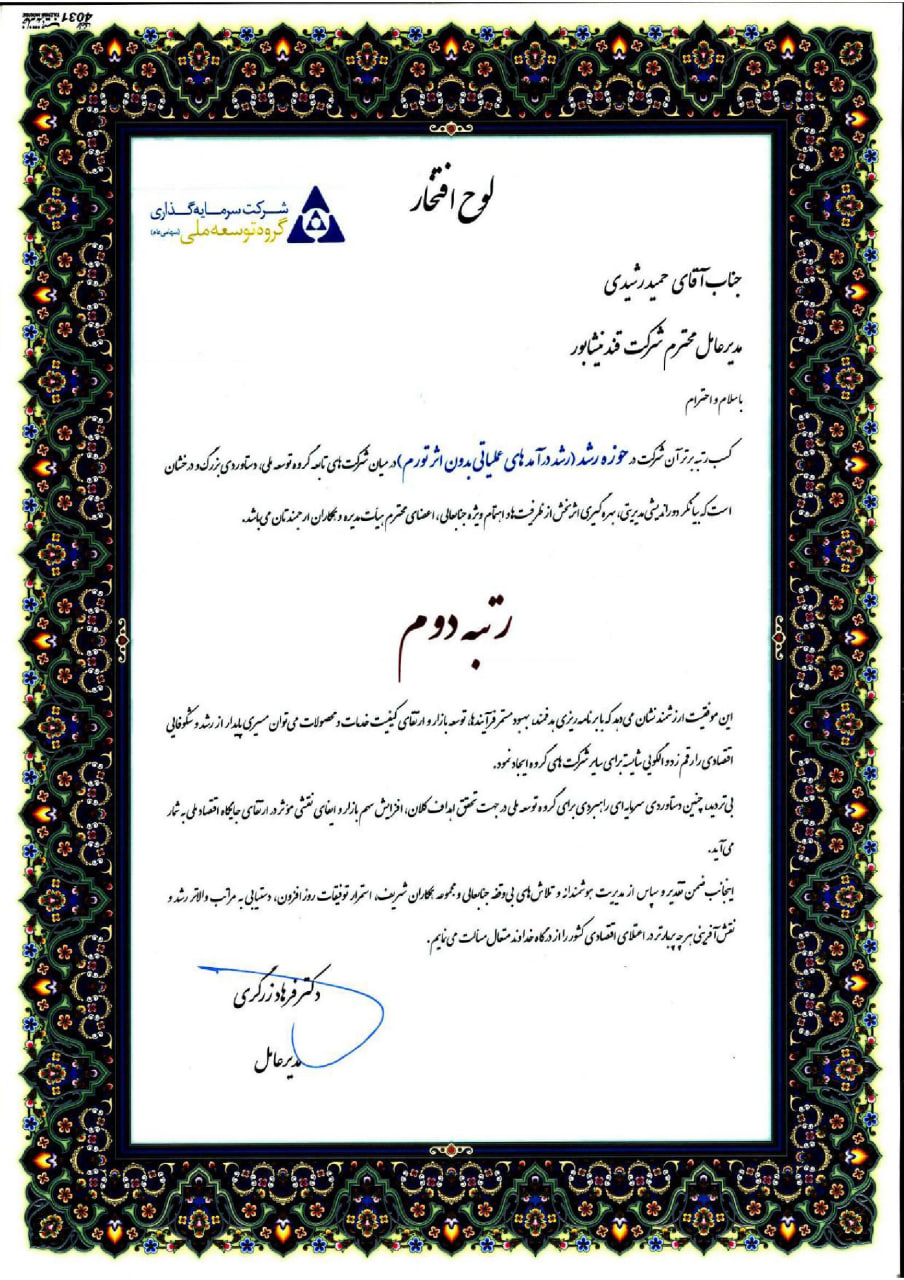 4031
لوح افتخار
شرکت سرمایه‌گذاری
گروه توسعه ملی (سهامی عام)
جناب آقای حمید رشیدی
مدیرعامل محترم شرکت قند نیشابور
با سلام و احترام
کسب رتبه برتر آن شرکت در حوزه رشد (رشد درآمدهای عملیاتی بدون اثر تورم) در میان شرکت‌های تابعه گروه توسعه ملی، دستاوردی بزرگ و درخشان
است که بیانگر دوراندیشی مدیریتی، بهره‌گیری اثربخش از ظرفیت‌ها و اهتمام ویژه جنابعالی، اعضای محترم هیأت مدیره و همکاران ارجمندتان می‌باشد.
رتبه دوم
این موفقیت ارزشمند نشان می‌دهد که با برنامه‌ریزی هدفمند، بهبود مستمر فرآیندها، توسعه بازار و ارتقای کیفیت خدمات و محصولات می‌توان مسیری پایدار از رشد و شکوفایی
اقتصادی را رقم زد و الگویی شایسته برای سایر شرکت‌های گروه ایجاد نمود.
بی‌تردید، چنین دستاوردی سرمایه‌ای راهبردی برای گروه توسعه ملی در جهت تحقق اهداف کلان، افزایش سهم بازار و ایفای نقشی مؤثر در ارتقای جایگاه اقتصاد ملی به شمار
می‌آید.
اینجانب ضمن تقدیر و سپاس از مدیریت هوشمندانه و تلاش‌های بی‌وقفه جنابعالی و مجموعه همکاران شریف، استمرار توفیقات روزافزون، دستیابی به مراتب والاتر رشد و
نقش‌آفرینی هرچه پربارتر در اعتلای اقتصادی کشور را از درگاه خداوند متعال مسألت می‌نمایم.
دکتر فرهاد زرگری
مدیرعامل